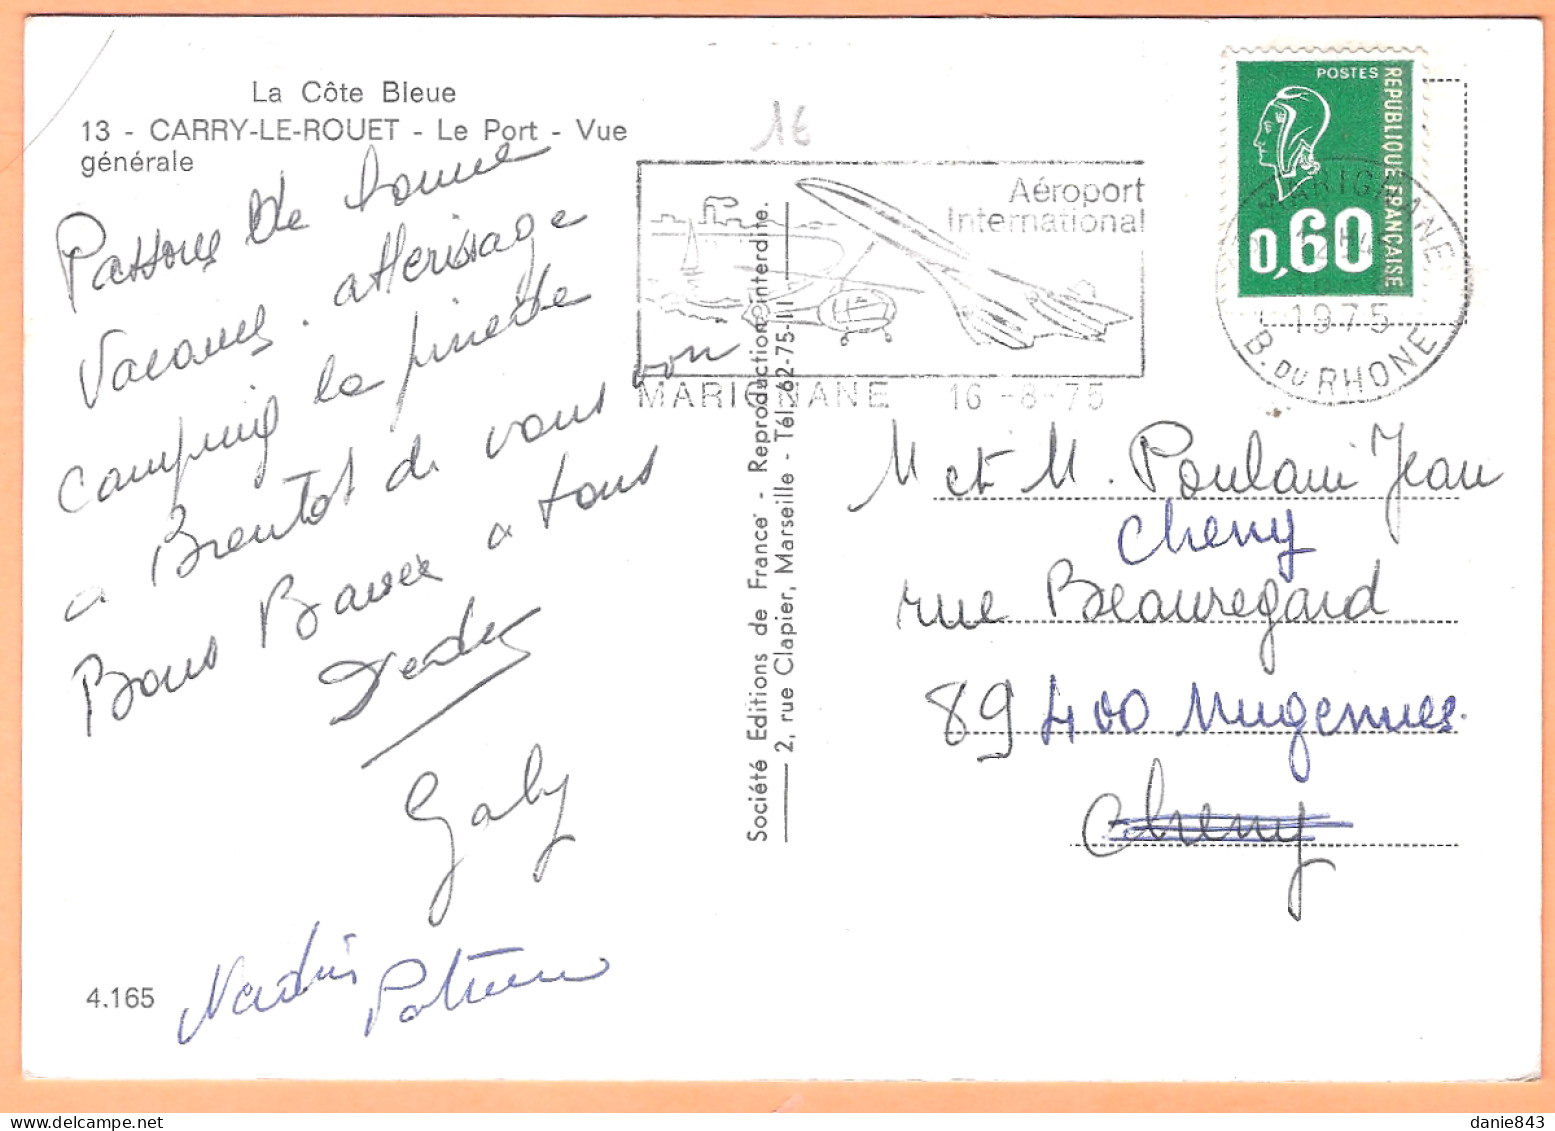 La Côte Bleue
13 - CARRY-LE-ROUET - Le Port - Vue
générale
Passons de bonne
Vacances. atterissage
camping la pinede
a Bientot de vous voir
Bons Baiser a tous
Gaby
4.165
Société Editions de France - Reproduction interdite.
2, rue Clapier, Marseille - Tél. 62-75-11
1€
Aéroport
International
MARIGNANE 16-8-75
POSTES
REPUBLIQUE FRANÇAISE
0,60
MARIGNANE
1975
B. DU RHONE
M et M. Poulain Jean
Cheny
rue Beauregard
89 400 Migennes.
Cheny
danie843